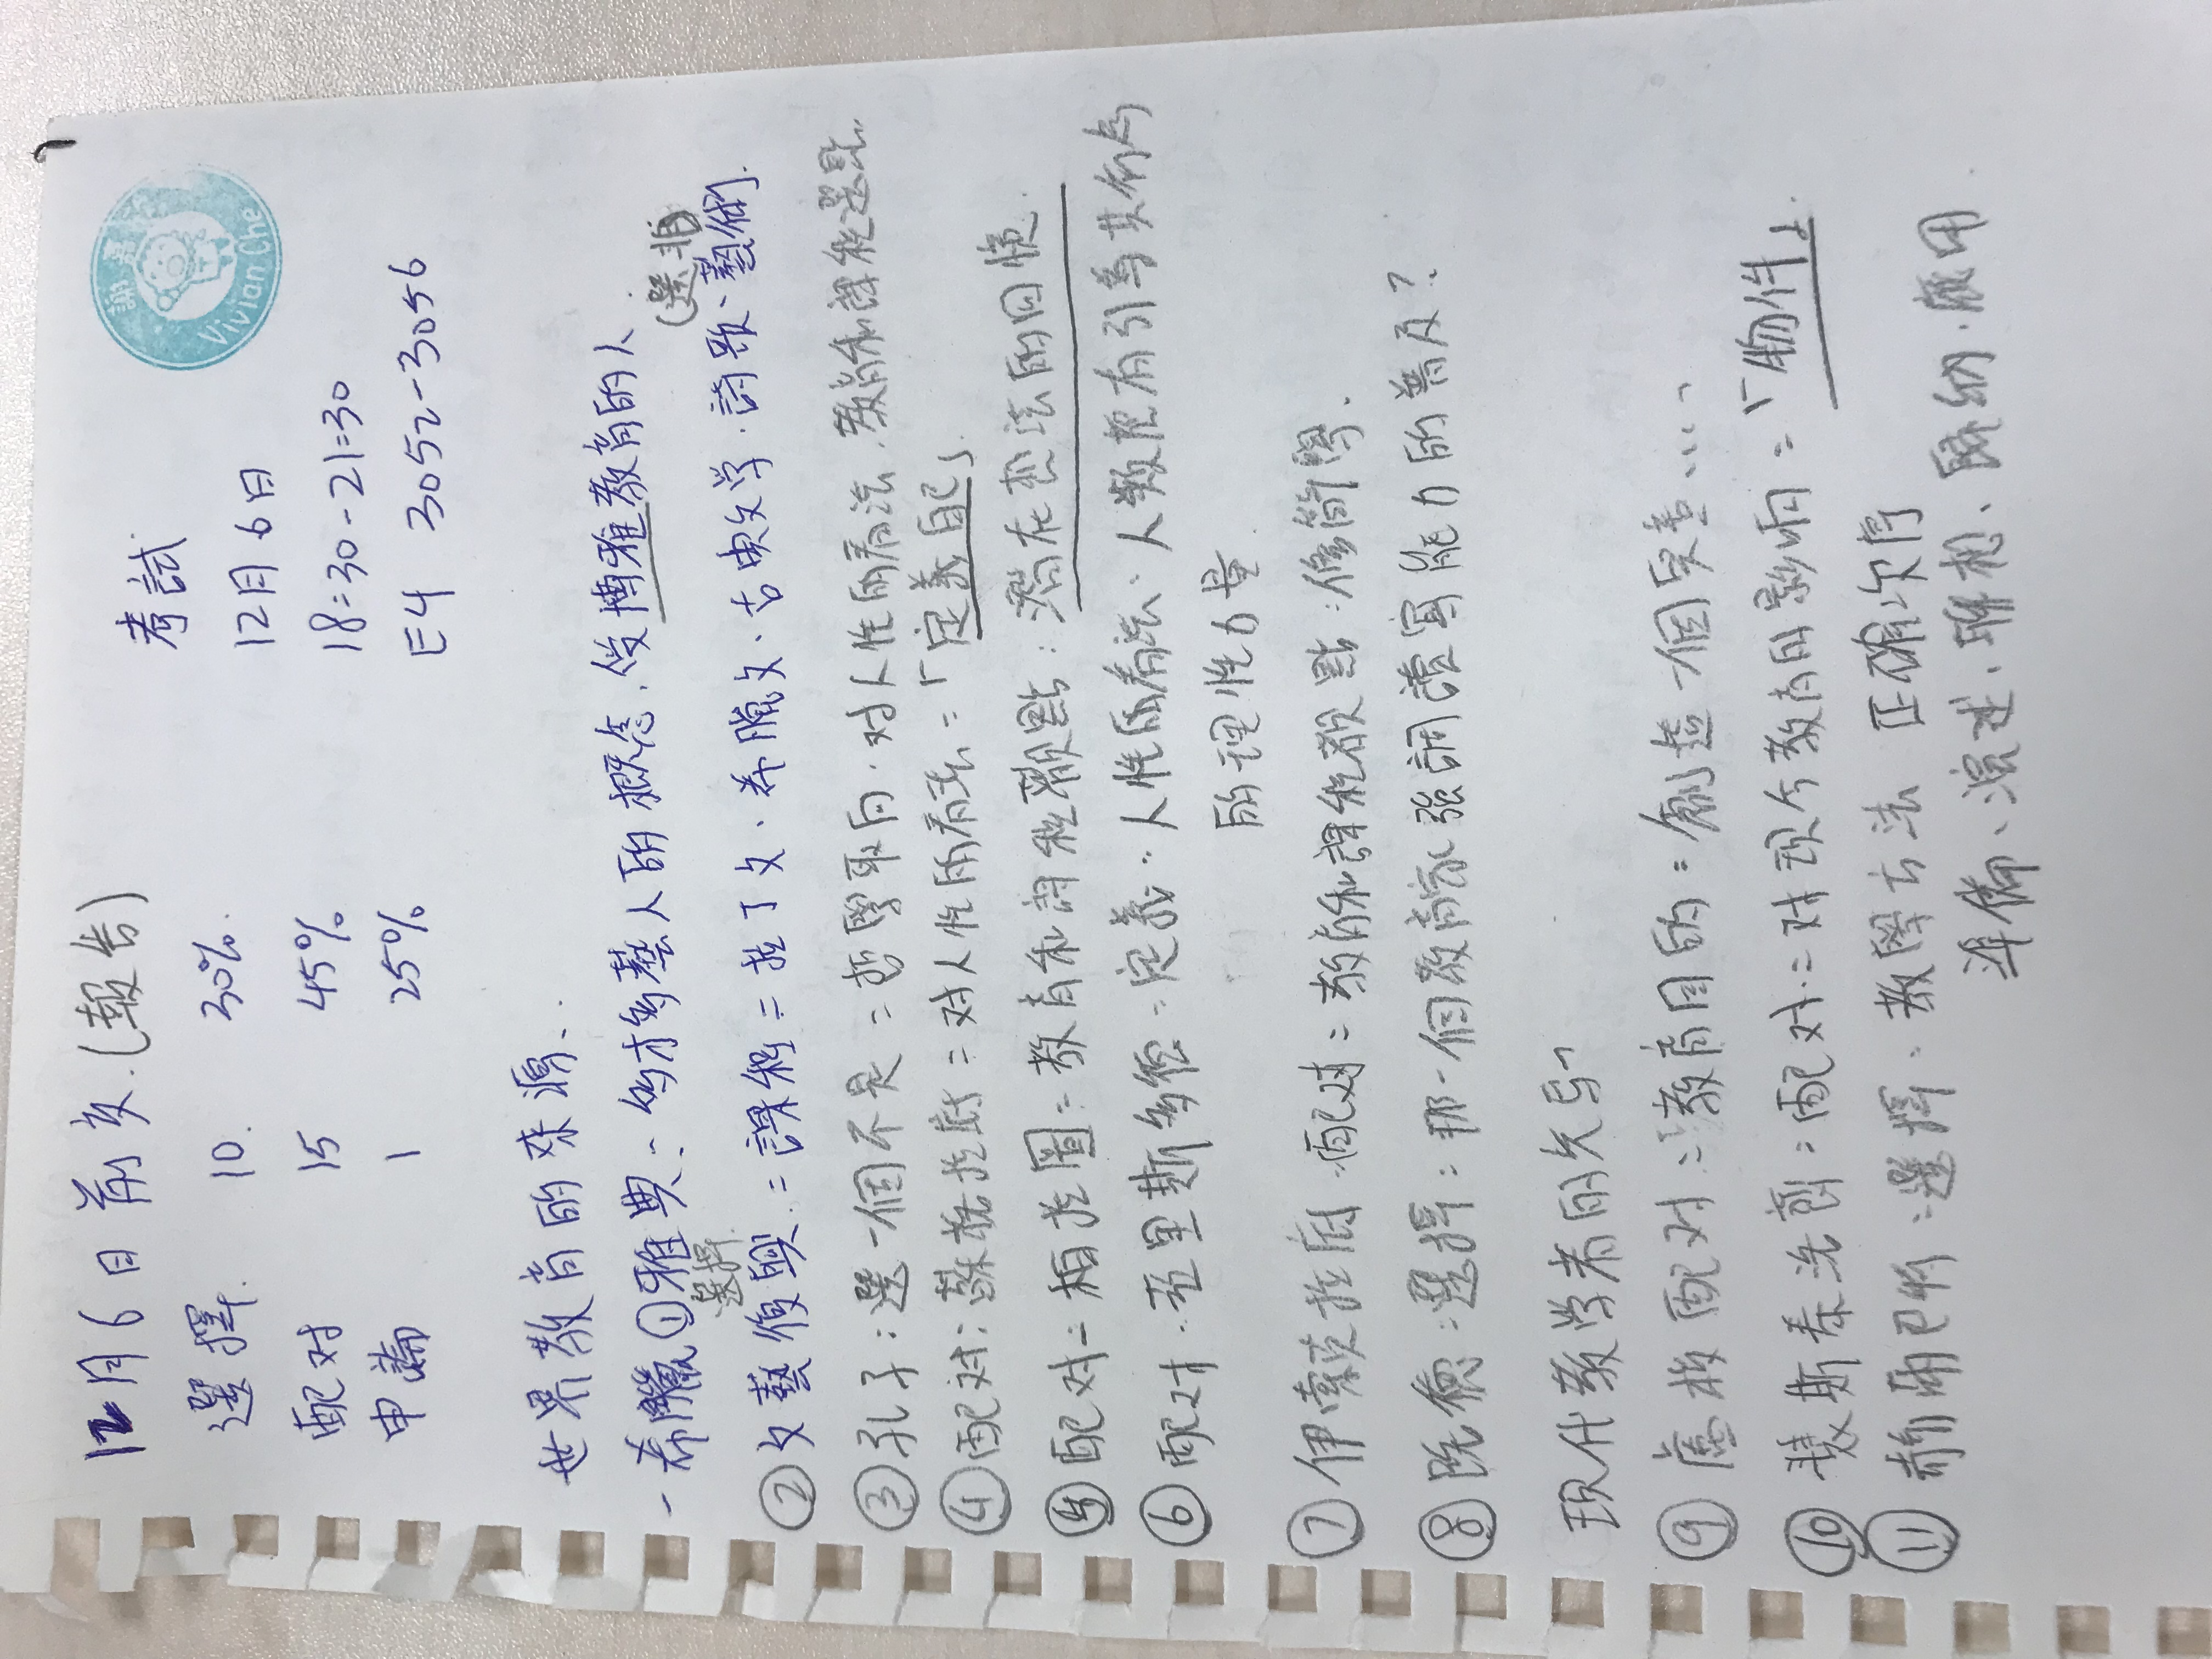 12月6日前交.(報告)
選擇. 10. 30%.
配对 15 45%
申論 1 25%
考試
12月6日
18:30-21:30
E4 3052-3056
謝嘉
Vivian Che
世界教育的來源..
-希臘①雅典:多才多藝人的概念.受博雅教育的人.
選擇.
(選非)
②文藝復興:課程:拉丁文.希臘文.古典文学.詩歌、藝術.
③孔子:選一個不是:哲學取向.对人性的看法.教育和課程觀點.
④配对:蘇格拉底:对人性的看法:「定義自己」.
⑤配对:柏拉圖:教育和課程觀點:潛在想法的回憶.
⑥配对.亞里斯多德:定義.人性的看法:人類擁有引導其行為
的理性力量.
⑦伊索克拉底.配对:教育和課程觀點:修辭學.
⑧既德:選擇:那一個教育家強調讀寫能力的普及?
现代教学者的先导
⑨盧梭配对:教育目的:創造一個兒童....
⑩裴斯泰洛齊:配对:对現今教育的影响:「物件」.
⑪赫爾巴特:選擇:教學方法 正確次序
準備、演述、聯想、歸納.應用.